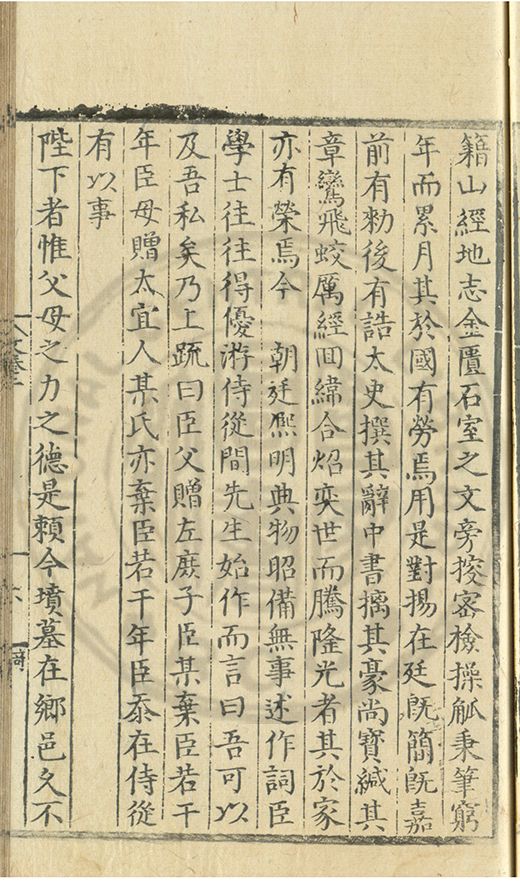 籍山經地志金匱石室之文旁挍宻檢操觚秉筆窮
年而累月其於國有勞焉用是對揚在廷旣簡旣嘉
前有勑後有誥太史撰其辭中書摛其豪尚寳緘其
章鸞飛蛟厲經囬緯合焰奕世而騰隆光者其於家
亦有榮焉今 朝廷熈明典物昭備無事述作詞臣
學士往往得優游侍從間先生始作而言曰吾可以
及吾私矣乃上䟽曰臣父贈左庻子臣某棄臣若干
年臣母贈太宜人某氏亦棄臣若干年臣忝在侍從
有以事
陛下者惟父母之力之德是賴今墳墓在鄉邑久不
文卷二
六